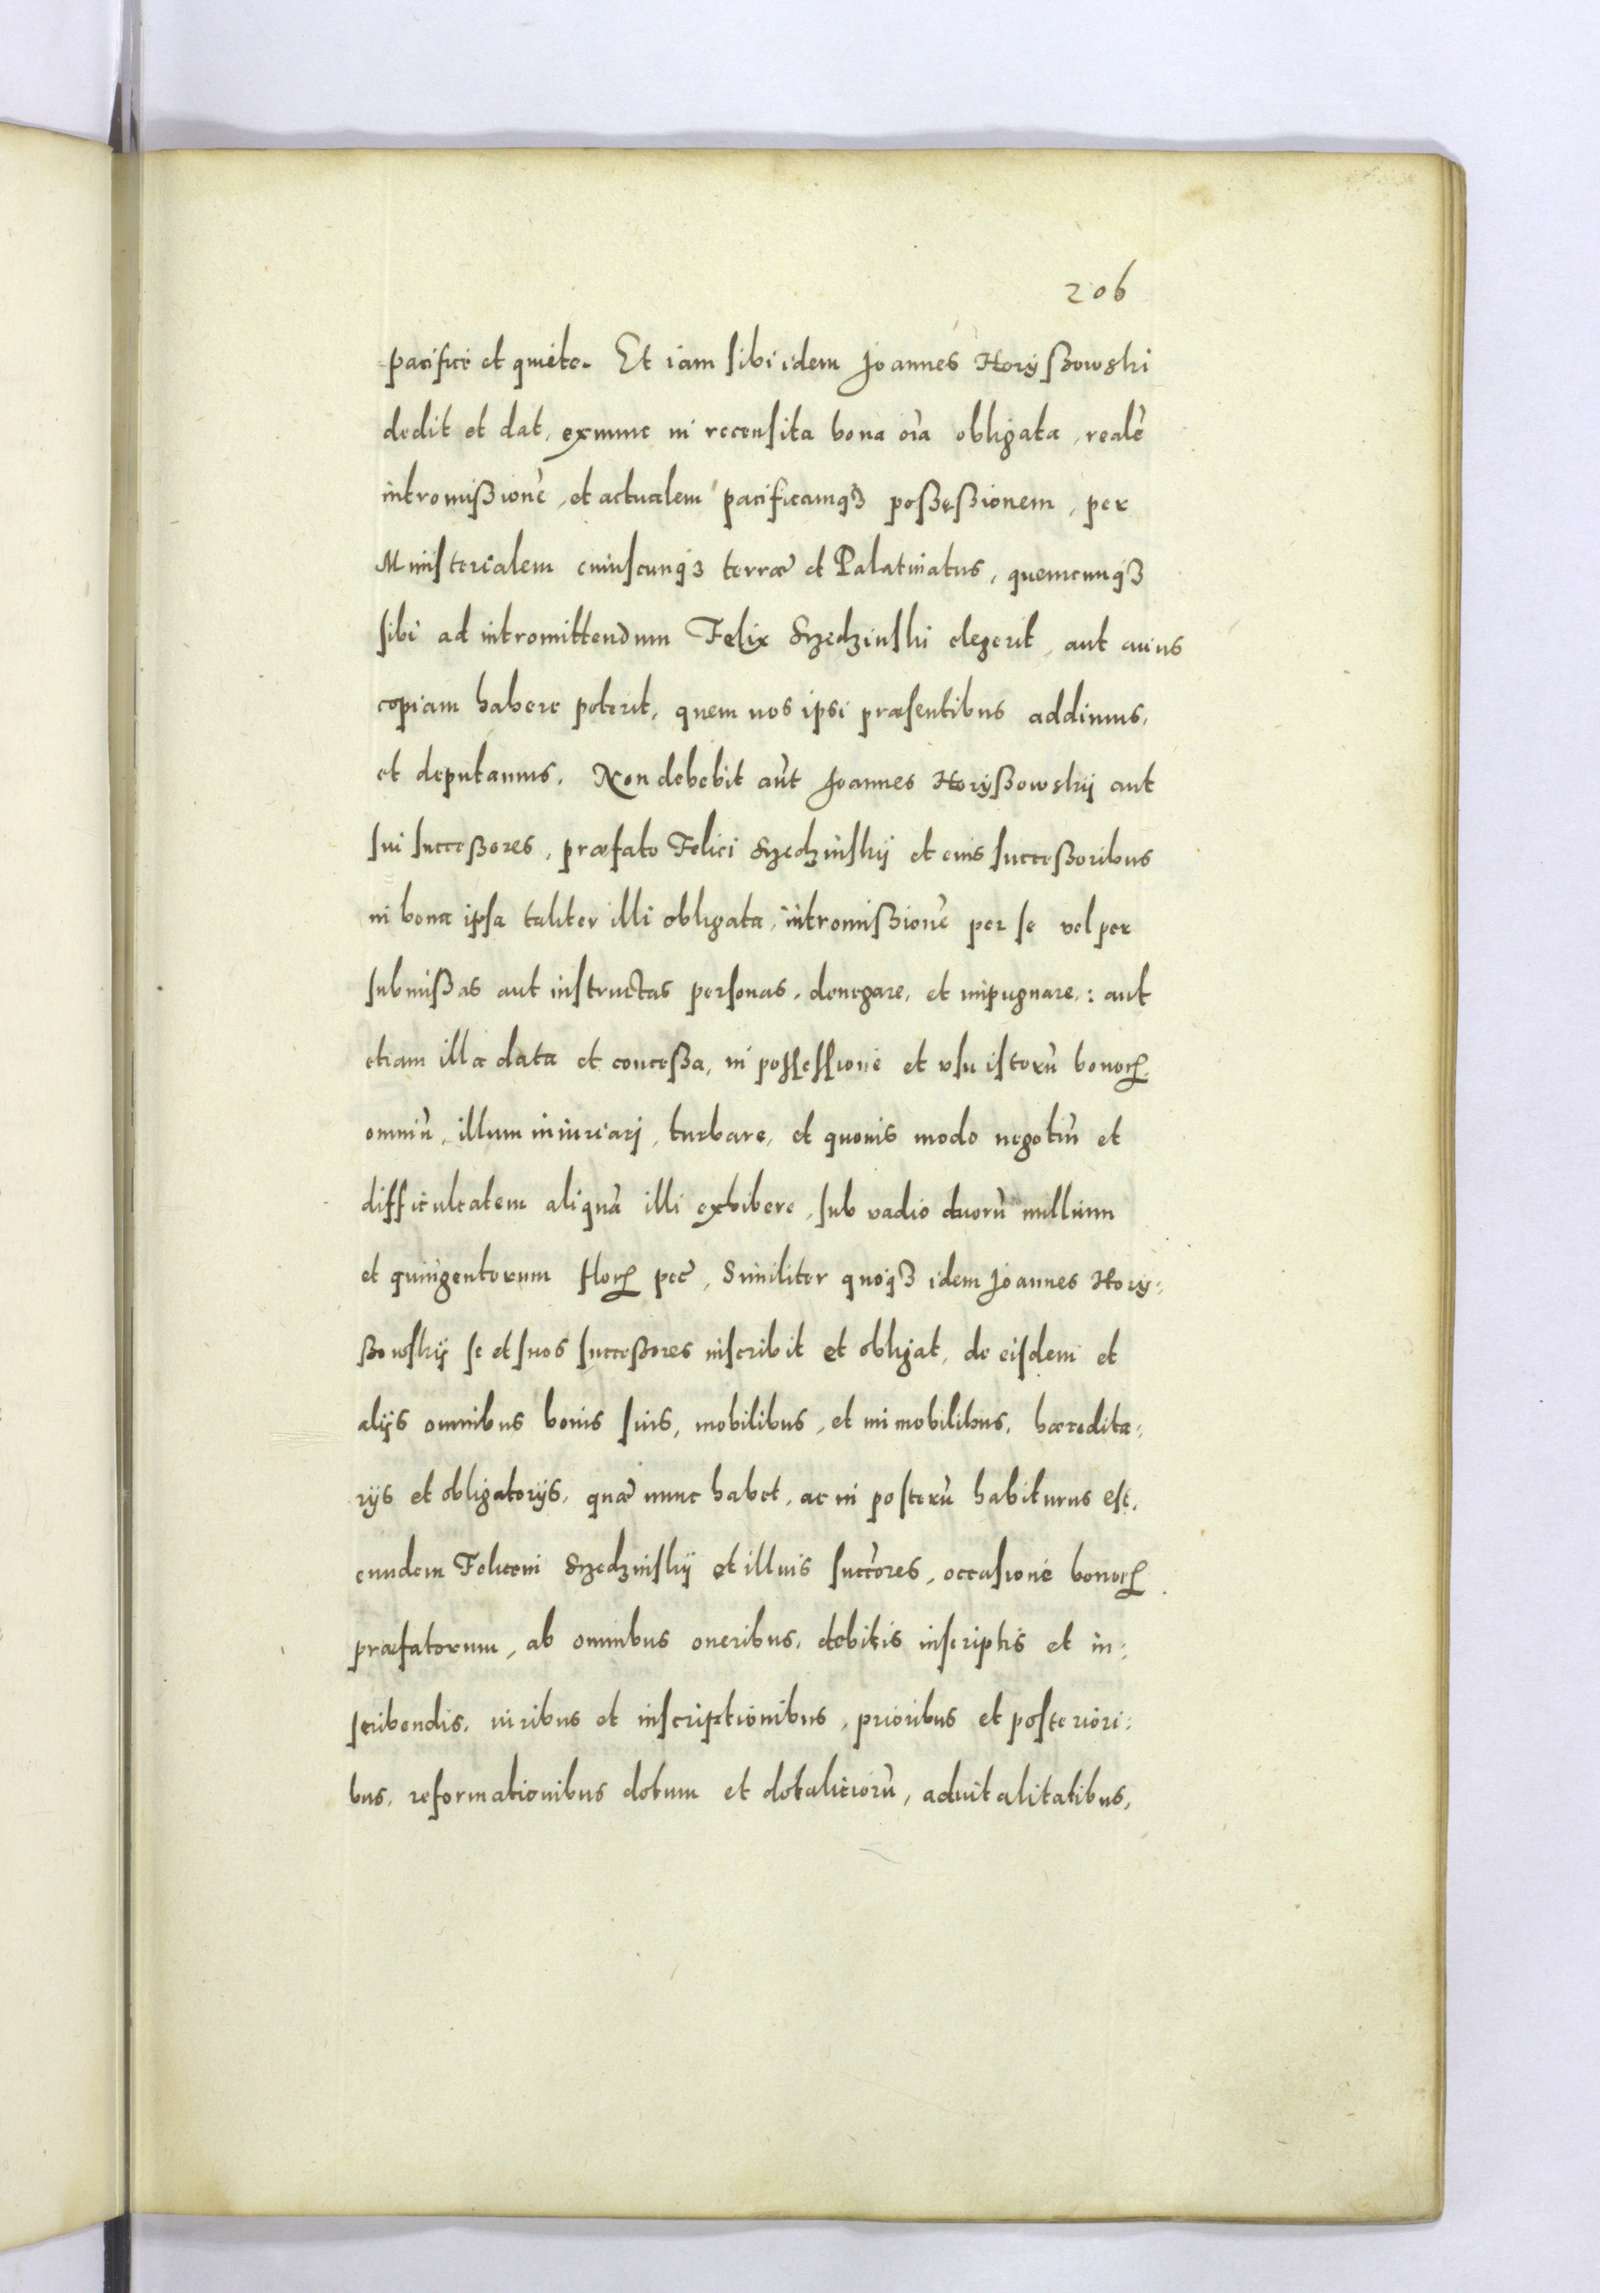 206
pacifice et quiete. Et iam sibi idem Joannes Horyßowski
dedit et dat, exnunc in recensita bona oĩa obligata, realẽ
intromißionẽ, et actualem pacificamqʒ poßeßionem, per
Ministerialem cuiuscunqʒ terræ et Palatinatus, quemcunqʒ
sibi ad intromittendum Felix Szedzinski elegerit, aut cuius
copiam habere poterit, quem nos ipsi præsentibus addimus,
et deputamus. Non debebit aũt Joannes Horyßowskij aut
sui succeßores, præfato Felici Szedzinskij et eius succeßoribus
in bona ipsa taliter illi obligata, intromißionẽ per se vel per
submißas aut instructas personas, denegare, et impugnare,: aut
etiam illa data et conceßa, in possessione et vsu istorũ bonoꝝ
omniũ, illum iniuriarj, turbare, et quouis modo negotiũ et
difficultatem aliquã illi exhibere, sub vadio duorũ millium
et quingentorum floꝝ pec̃, Similiter quoqʒ idem Joannes Hory:
ßowskij se et suos succeßores inscribit et obligat, de eisdem et
alijs omnibus bonis suis, mobilibus, et immobilibus, hæredita:
rijs et obligatorijs, quæ nunc habet, ac in posterũ habiturus est,
eundem Felicem Szedzinskij et illius succ̃ores, occasione bonoꝝ
præfatorum, ab omnibus oneribus, debitis inscriptis et in:
scribendis, iuribus et inscriptionibus, prioribus et posteriori:
bus, reformationibus dotum et dotalitiorũ, aduitalitatibus,